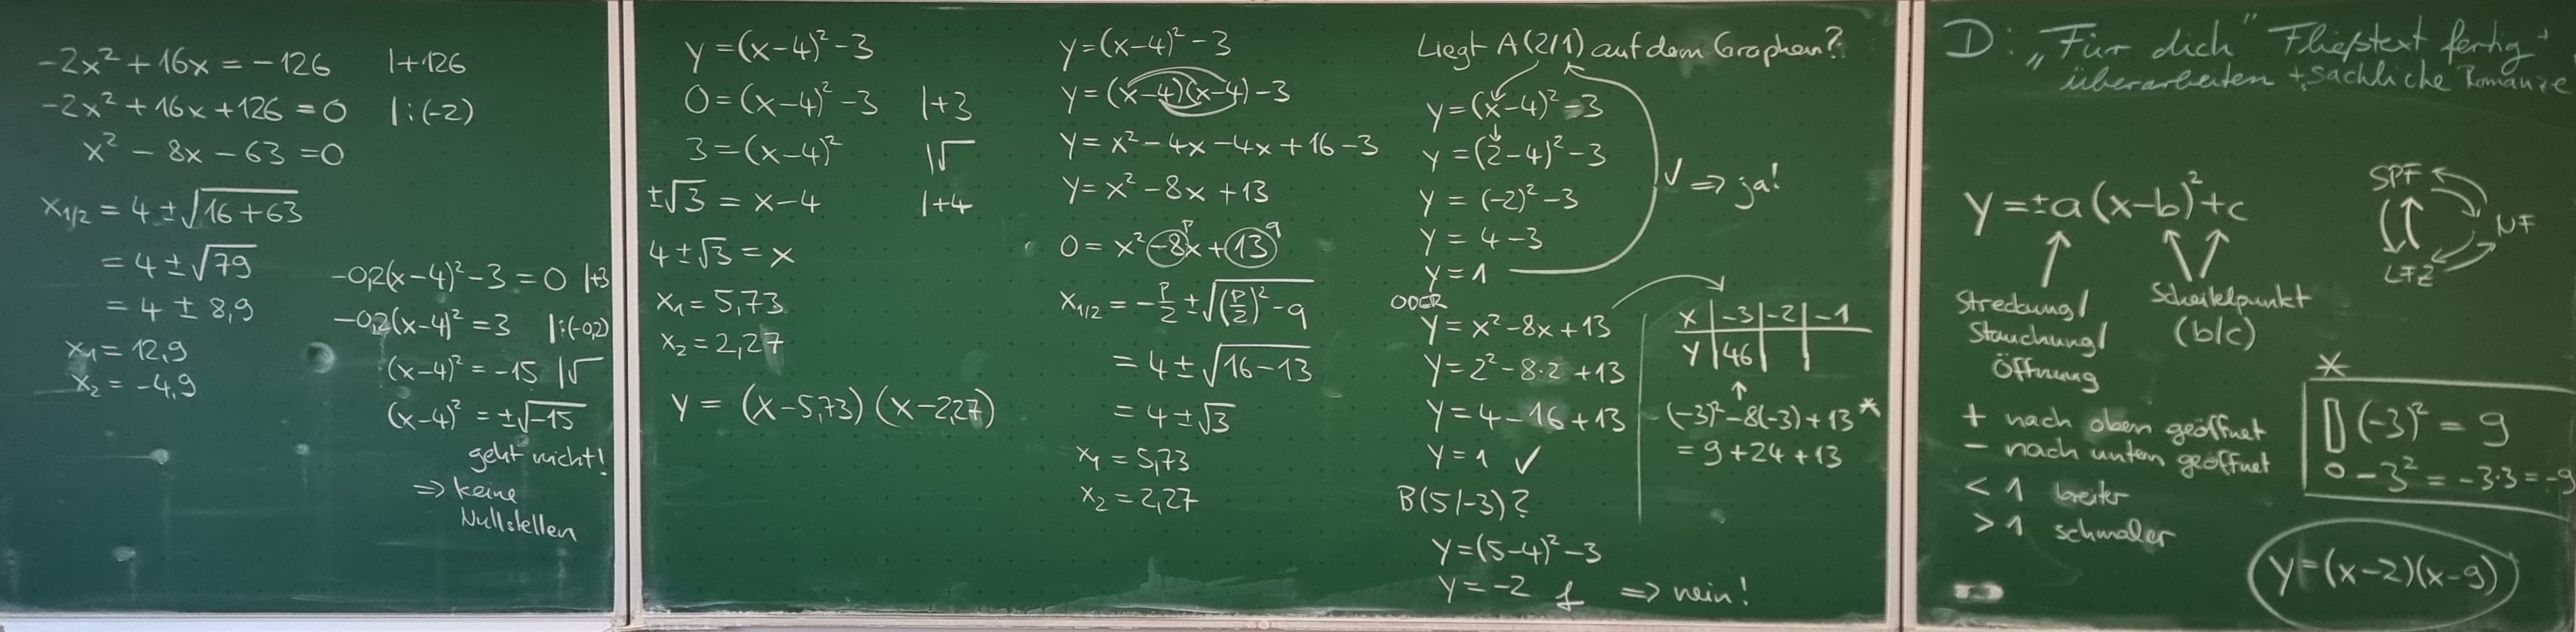 -2x² + 16x = -126 |+126
-2x² + 16x + 126 = 0 |:(-2)
x² - 8x - 63 = 0
x₁/₂ = 4 ± √16+63
= 4 ± √79
= 4 ± 8,9
x₁ = 12,9
x₂ = -4,9
-0,2(x-4)² - 3 = 0 |+3
-0,2(x-4)² = 3 |:(-0,2)
(x-4)² = -15 |√
(x-4)² = ±√-15
geht nicht!
=> keine
Nullstellen
y = (x-4)² - 3
0 = (x-4)² - 3 |+3
3 = (x-4)² |√
±√3 = x-4 |+4
4 ± √3 = x
x₁ = 5,73
x₂ = 2,27
y = (x-5,73)(x-2,27)
y = (x-4)² - 3
y = (x-4)(x-4) - 3
y = x² - 4x - 4x + 16 - 3
y = x² - 8x + 13
p q
0 = x² - 8x + 13
x₁/₂ = -p/2 ± √(p/2)² - q
= 4 ± √16-13
= 4 ± √3
x₁ = 5,73
x₂ = 2,27
Liegt A(2/1) auf dem Graphen?
y = (x-4)² - 3
y = (2-4)² - 3
y = (-2)² - 3
y = 4 - 3
y = 1
✓ => ja!
ODER
y = x² - 8x + 13
y = 2² - 8·2 + 13
y = 4 - 16 + 13
y = 1 ✓
B(5/-3)?
y = (5-4)² - 3
y = -2 => nein!
x | -3 | -2 | -1
y | 46 | |
(-3)² - 8(-3) + 13 *
= 9 + 24 + 13
D: „Für dich" Fließtext fertig +
überarbeiten + sachliche Romanze
y = ±a(x-b)² + c
Streckung/
Stauchung/
Öffnung
Scheitelpunkt
(b/c)
+ nach oben geöffnet
- nach unten geöffnet
< 1 breiter
> 1 schmaler
SPF
NF
LFZ
*
[] (-3)² = 9
o -3² = -3·3 = -9
y = (x-2)(x-9)